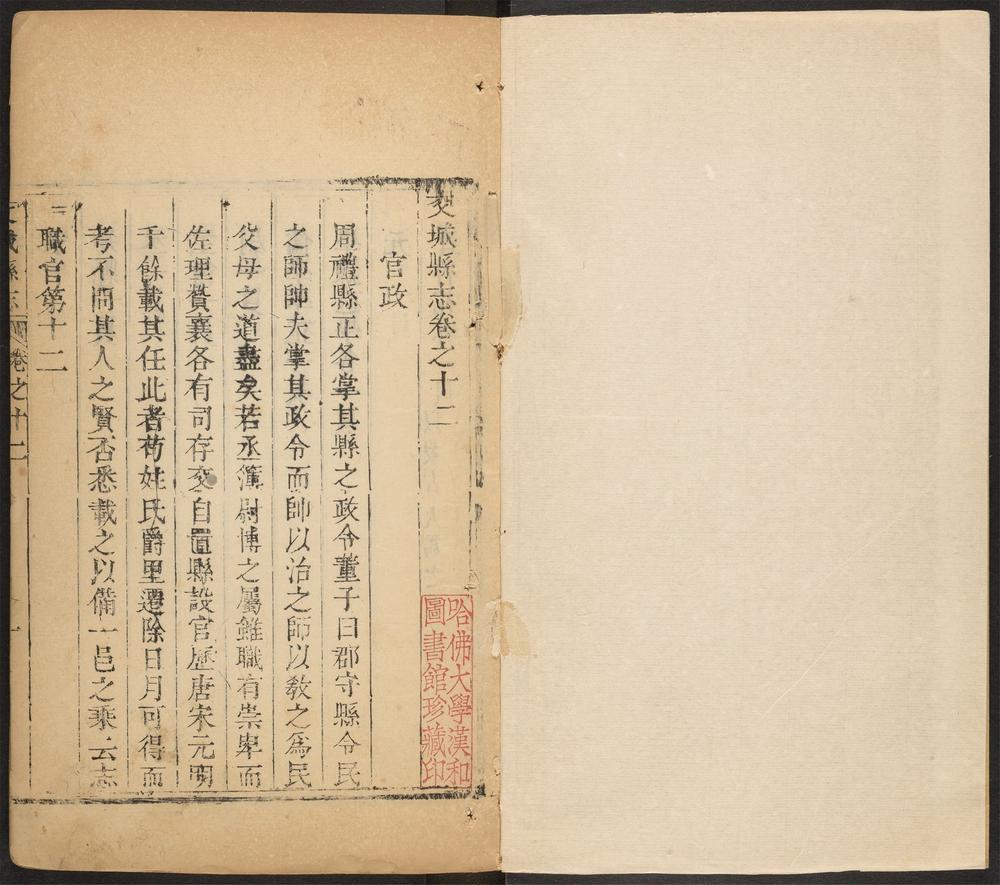 交城縣志卷之十二
官政
周禮縣正各掌其縣之政令董子曰郡守縣令民
之師帥夫掌其政令而帥以治之師以教之爲民
父母之道盡矣若丞簿尉博之屬雖職有崇卑而
佐理贊襄各有司存交自置縣設官歷唐宋元明
千餘載其任此者苟姓氏爵里遷除日月可得而
考不問其人之賢否悉載之以備一邑之乗云志
職官第十二
交城縣志
卷之十二
一
哈佛大學漢和
圖書館珍藏印